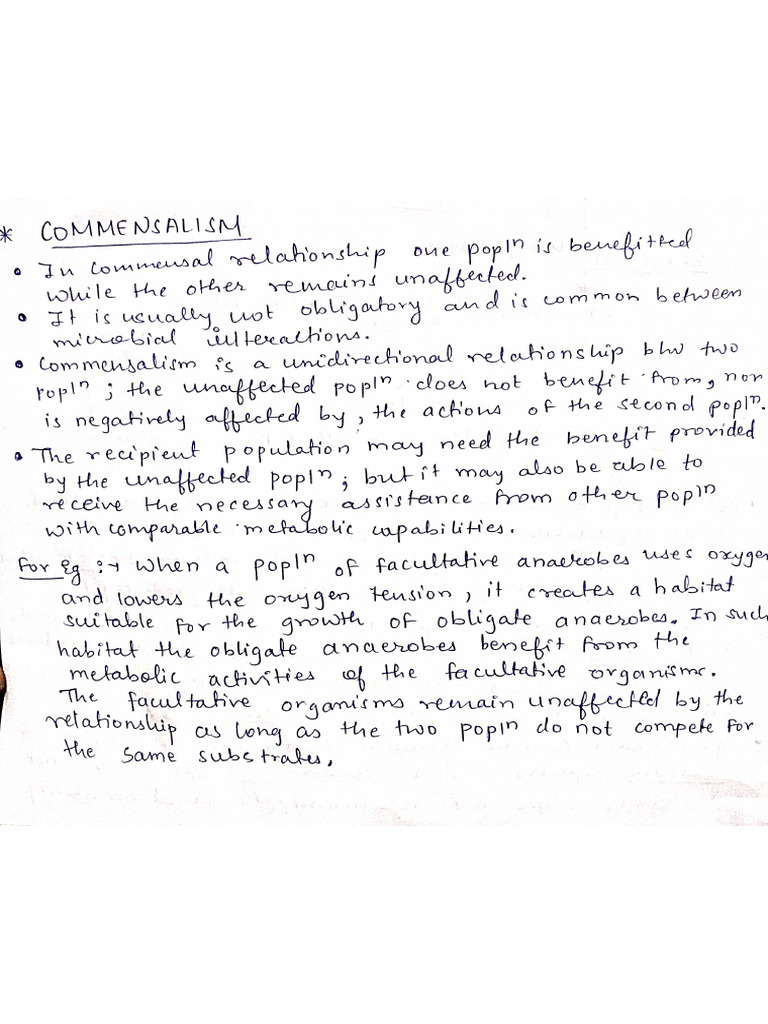 * COMMENSALISM
• In commensal relationship one popln is benefitted
while the other remains unaffected.
• It is usually not obligatory and is common between
microbial interactions.
• Commensalism is a unidirectional relationship b/w two
popln ; the unaffected popln does not benefit from, nor
is negatively affected by, the actions of the second popln.
• The recipient population may need the benefit provided
by the unaffected popln ; but it may also be able to
receive the necessary assistance from other popln
with comparable metabolic capabilities.
For Eg :→ When a popln of facultative anaerobes uses oxygen
and lowers the oxygen tension, it creates a habitat
suitable for the growth of obligate anaerobes. In such
habitat the obligate anaerobes benefit from the
metabolic activities of the facultative organisms.
The facultative organisms remain unaffected by the
relationship as long as the two popln do not compete for
the same substrates.